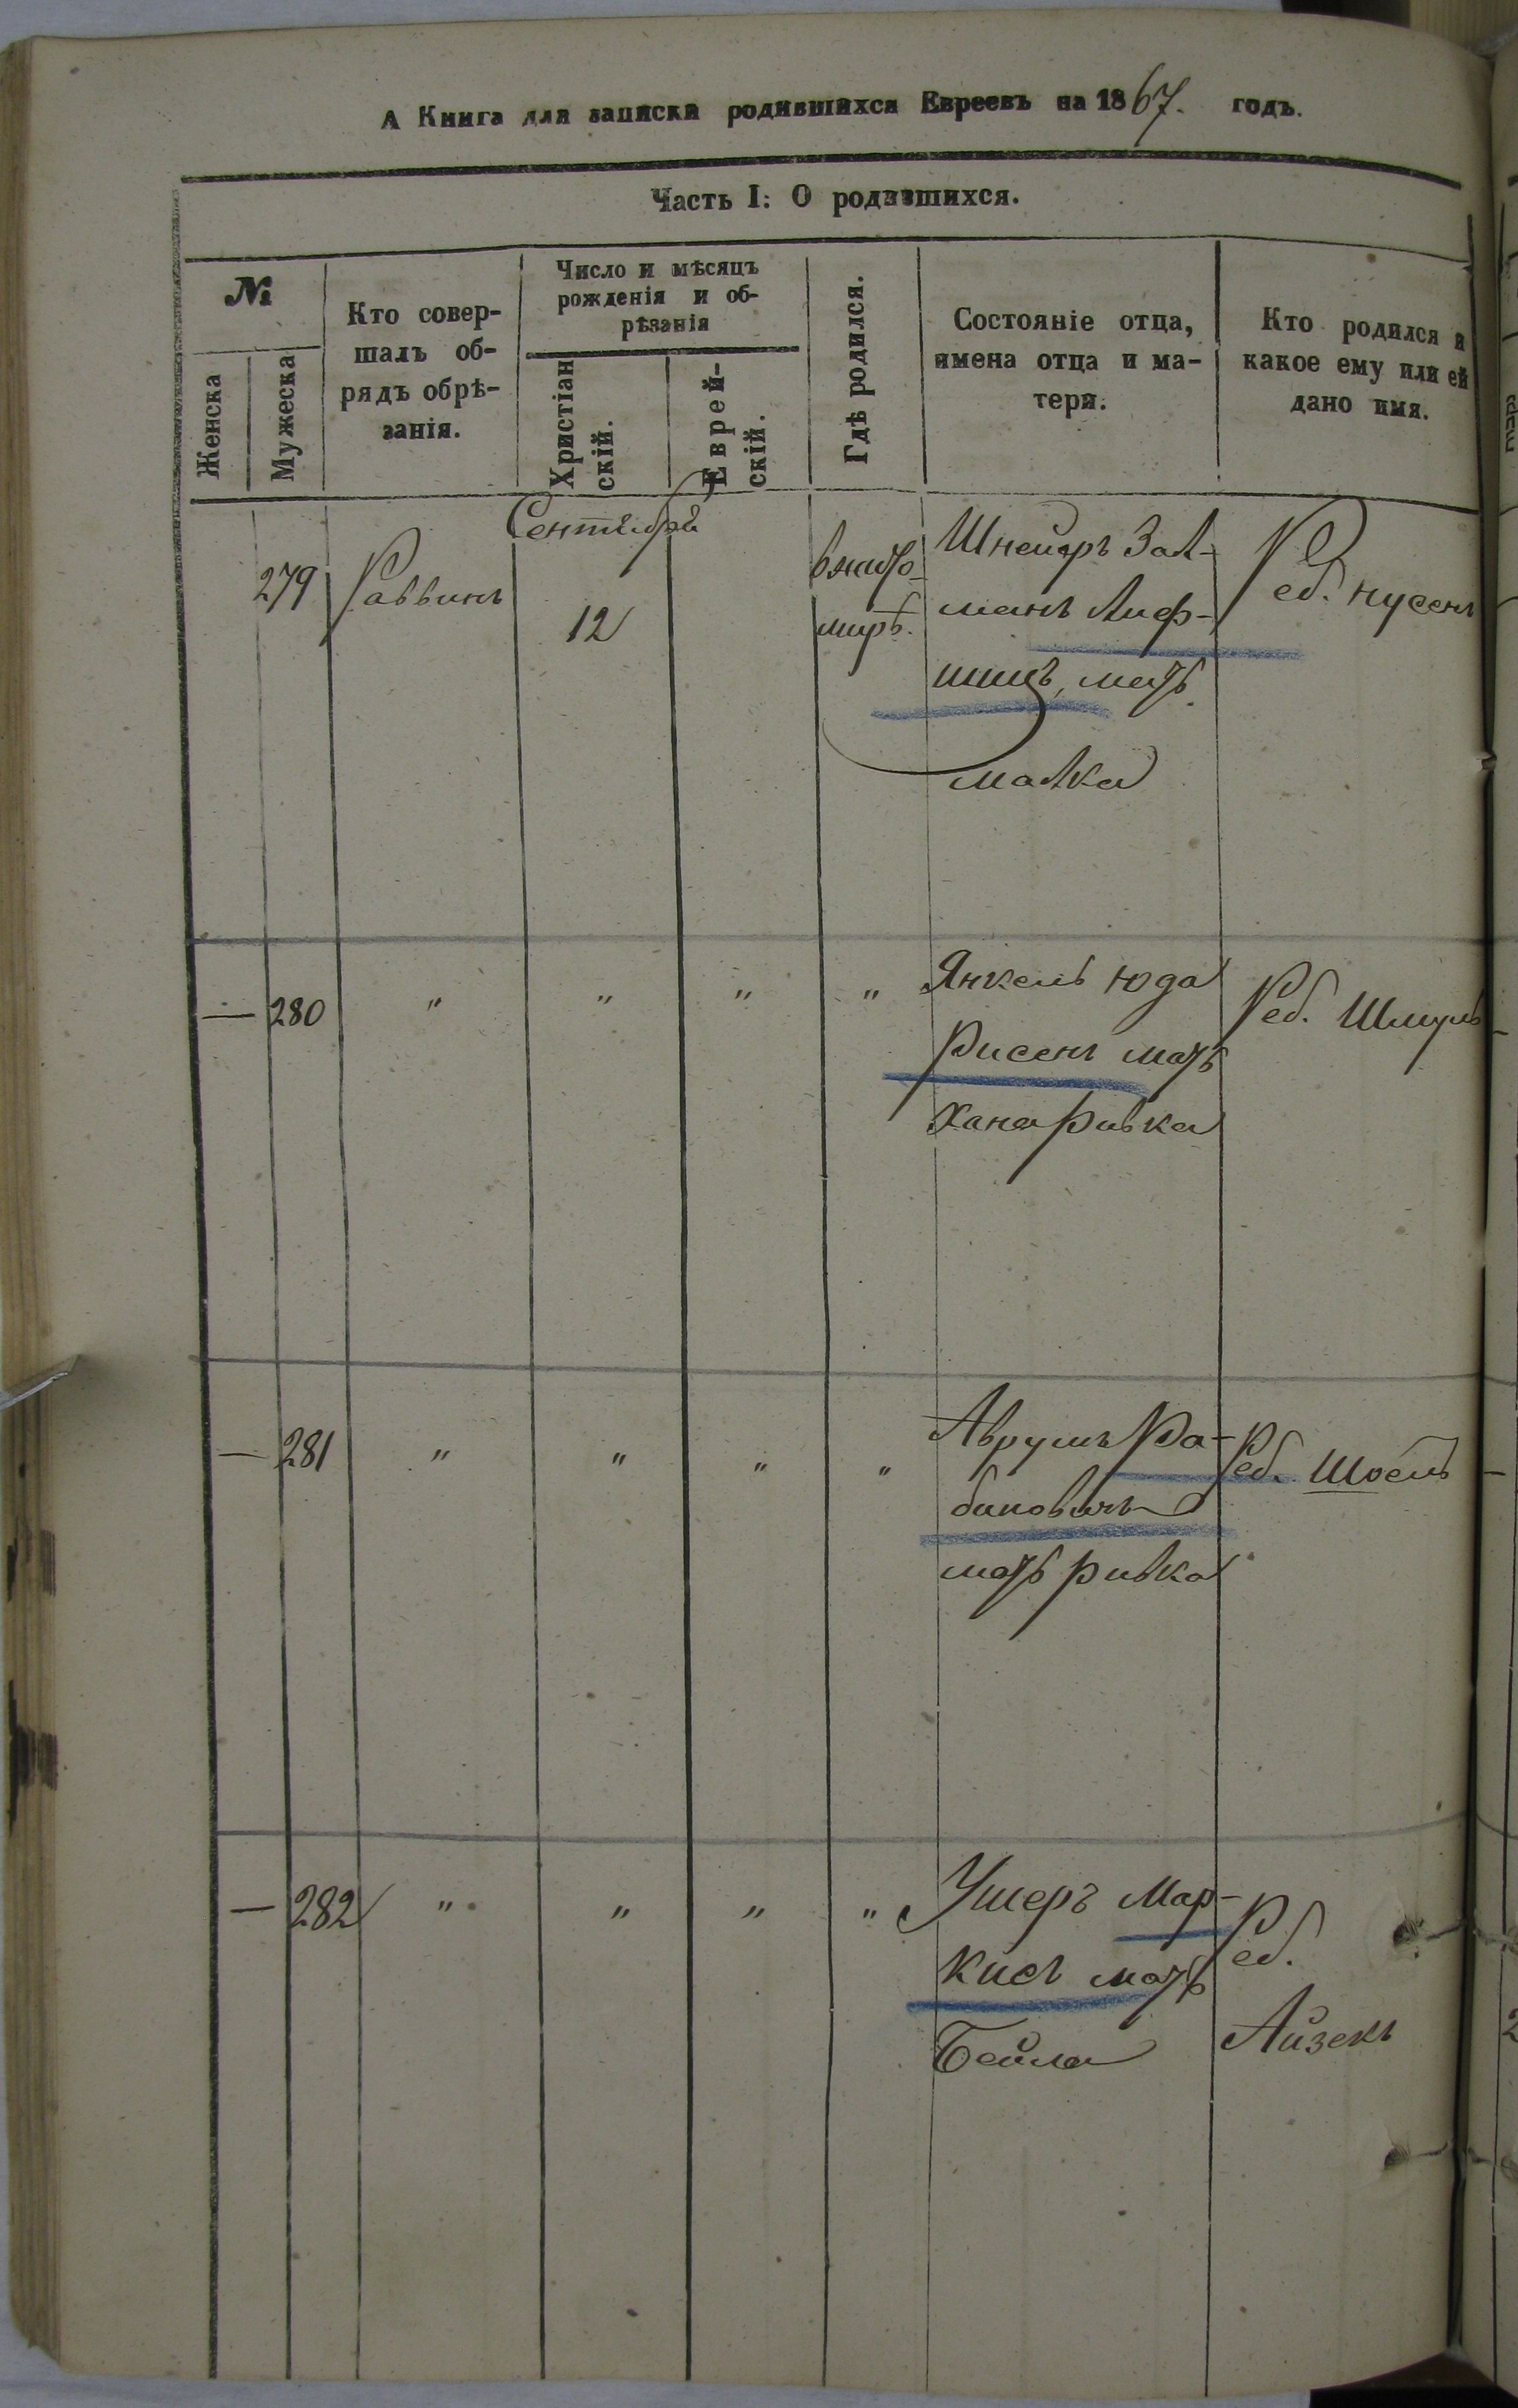 А Книга для записки родившихся Евреевъ на 1867. годъ.
Часть I: О родившихся.
№
Женска
Мужеска
Кто совер-
шалъ об-
рядъ обрѣ-
занія.
Число и мѣсяцъ
рожденія и об-
рѣзанія
Христіан
скій.
Еврей-
скій.
Гдѣ родился.
Состояніе отца,
имена отца и ма-
тери.
Кто родился и
какое ему или ей
дано имя.
Сентября
279 Раввинъ 12
в жито-
мирѣ.
Шнейеръ Зал-
манъ Лиф-
шицъ, мать
малка
Реб. нусенъ
— 280 " " " "
Янкель юда
Рисенъ мать
Хана Ривка
Реб. Шмуль
— 281 " " " "
Аврумъ Ра-
биновичъ
мать ривка
Реб. Шоель
— 282 " " " "
Ушеръ Мар-
кисъ мать
Бейла
Реб.
Айзекъ